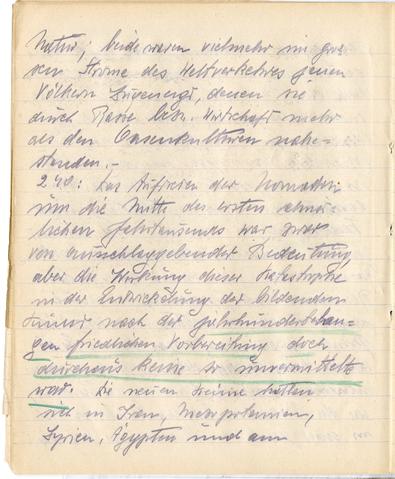 Natur; beide waren vielmehr im gros
sen Strome des Weltverkehres jenen
Völkern zugeneigt, denen sie
durch Rasse bezw. Wirtschaft mehr
als den Oasenkulturen nahe-
standen.-
248: Das Auftreten der Nomaden
um die Mitte des ersten christ-
lichen Jahrtausends war zwar
von ausschlaggebender Bedeutung,
aber die Wirkung dieser Katastrophe
in der Entwickelung der bildenden
Kunst nach der jahrhundertelan-
gen friedlichen Vorbereitung doch
durchaus keine so unvermittelte
war. Die neuen Keime hatten
sich in Iran, Mesopotamien,
Syrien, Ägypten und am